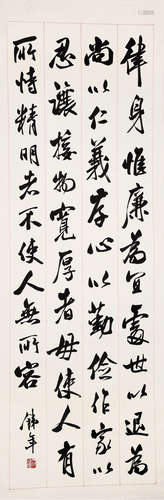 律身惟廉為宜處世以退為
尚以仁義存心以勤儉作家以
忍讓接物寬厚者毋使人有
所恃精明者不使人無所容
偉年